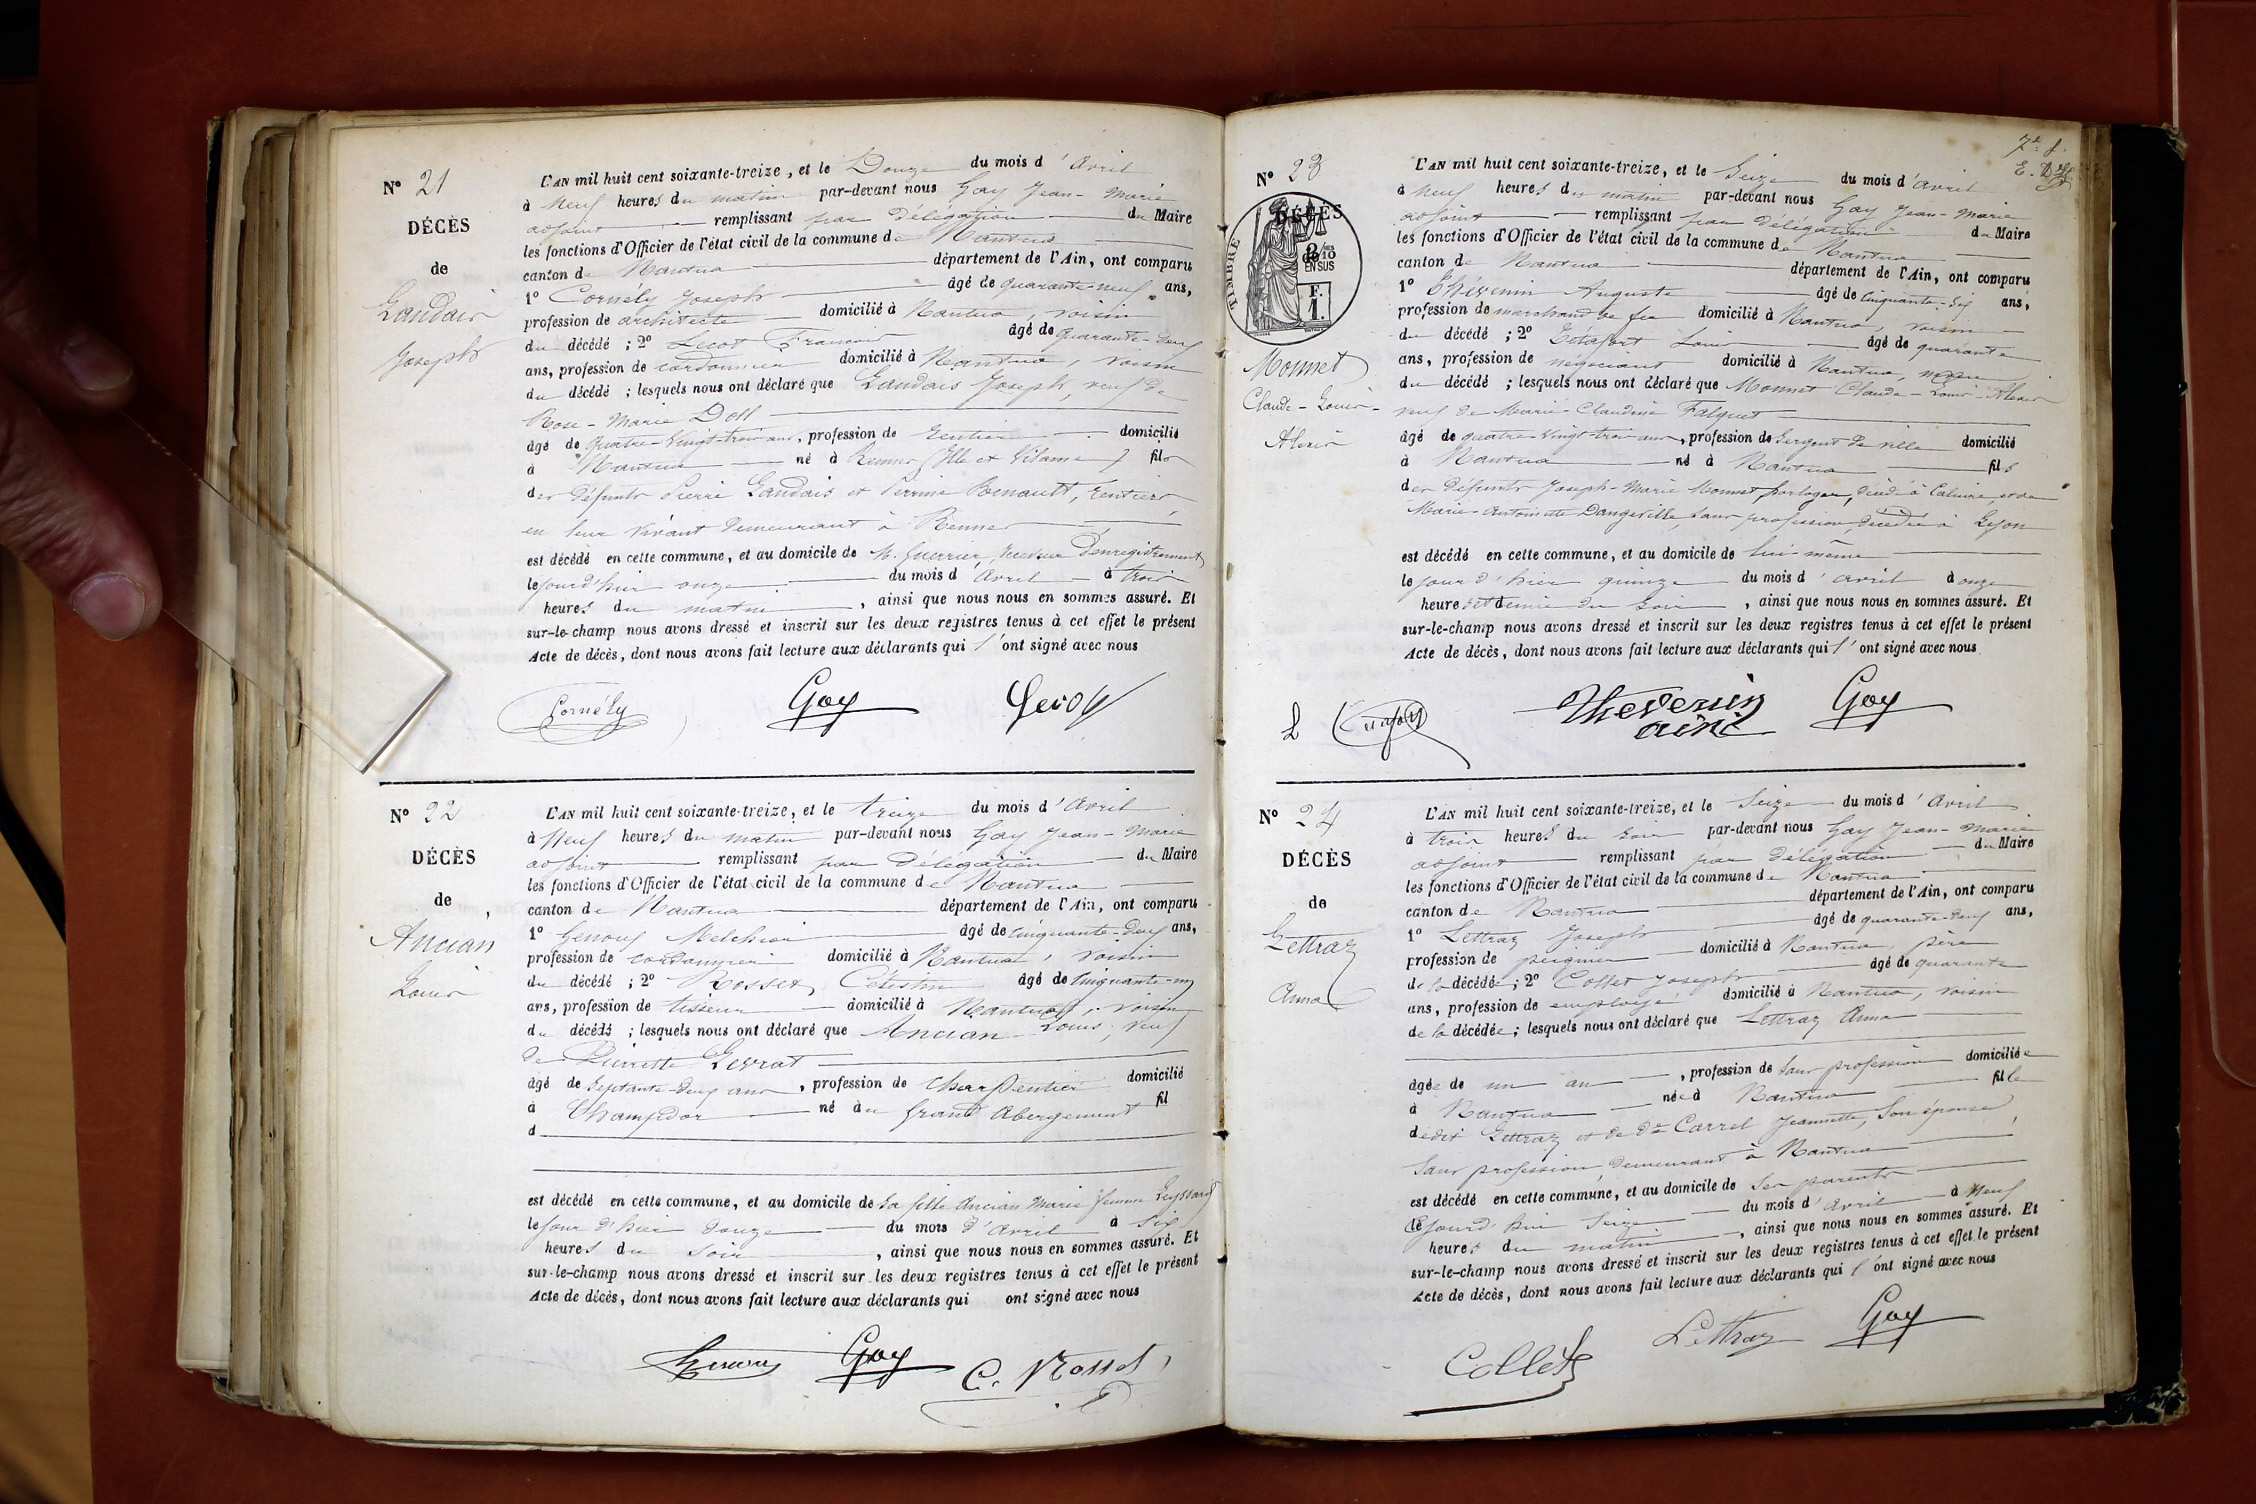 N° 21
DÉCÈS
de
Landais
Joseph
L'AN mil huit cent soixante-treize, et le Douze du mois d'Avril
à Neuf heures du matin par-devant nous Gay Jean-Marie
adjoint remplissant par délégation du Maire
les fonctions d'Officier de l'état civil de la commune de Nantua
canton de Nantua département de l'Ain, ont comparu
1° Cornély Joseph âgé de quarante-neuf ans,
profession de architecte domicilié à Nantua, voisin
du décédé ; 2° Lecot François âgé de quarante-deux
ans, profession de cordonnier domicilié à Nantua, voisin
du décédé ; lesquels nous ont déclaré que Landais Joseph, veuf de
Rose-Marie Doll
âgé de quatre-vingt-trois ans, profession de rentier domicilié
à Nantua né à Rennes (Ille et Vilaine) fils
des défunts Pierre Landais et Perrine Renault, rentiers
en leur vivant demeurant à Rennes
est décédé en cette commune, et au domicile de M. Guerrier, receveur d'enregistrement
le jour d'hier onze du mois d'Avril à trois
heures du matin, ainsi que nous nous en sommes assuré. Et
sur-le-champ nous avons dressé et inscrit sur les deux registres tenus à cet effet le présent
Acte de décès, dont nous avons fait lecture aux déclarants qui l'ont signé avec nous
Cornély Gay Lecot
N° 22
DÉCÈS
de
Ancian
Louis
L'AN mil huit cent soixante-treize, et le treize du mois d'Avril
à Neuf heures du matin par-devant nous Gay Jean-Marie
adjoint remplissant par délégation du Maire
les fonctions d'Officier de l'état civil de la commune de Nantua
canton de Nantua département de l'Ain, ont comparu
1° Genoux Melchior âgé de cinquante-deux ans,
profession de cordonnier domicilié à Nantua, voisin
du décédé ; 2° Rosset, Célestin âgé de cinquante-un
ans, profession de tisseur domicilié à Nantua, voisin
du décédé ; lesquels nous ont déclaré que Ancian Louis, veuf
de Pierrette Gevrat
âgé de septante-deux ans, profession de charpentier domicilié
à Champdor né au Grand Abergement fil
d
est décédé en cette commune, et au domicile de sa fille Ancian Marie femme
le jour d'hier douze du mois d'Avril à six
heures du soir, ainsi que nous nous en sommes assuré. Et
sur-le-champ nous avons dressé et inscrit sur les deux registres tenus à cet effet le présent
Acte de décès, dont nous avons fait lecture aux déclarants qui ont signé avec nous
Genoux Gay C. Rosset
7e f.
N° 23
DÉCÈS
de
TIMBRE
EN SUS
F.
1.
Monnet
Claude-Louis-
Alexis
L'AN mil huit cent soixante-treize, et le Seize du mois d'avril
à Neuf heures du matin par-devant nous Gay Jean-Marie
adjoint remplissant par délégation du Maire
les fonctions d'Officier de l'état civil de la commune de Nantua
canton de Nantua département de l'Ain, ont comparu
1° Thévenin Auguste âgé de cinquante-six ans,
profession de marchand de fer domicilié à Nantua, voisin
du décédé ; 2° Létafort Louis âgé de quarante
ans, profession de négociant domicilié à Nantua,
du décédé ; lesquels nous ont déclaré que Monnet Claude-Louis-Alexis
veuf de Marie-Claudine Falquet
âgé de quatre-vingt-trois ans, profession de sergent de ville domicilié
à Nantua né à Nantua fils
des défunts Joseph-Marie Monnet, horloger, décédé à Caluire et de
Marie-Antoinette Dangeville, sans profession, décédée à Lyon
est décédé en cette commune, et au domicile de lui-même
le jour d'hier quinze du mois d'avril à onze
heures et demie du soir, ainsi que nous nous en sommes assuré. Et
sur-le-champ nous avons dressé et inscrit sur les deux registres tenus à cet effet le présent
Acte de décès, dont nous avons fait lecture aux déclarants qui l'ont signé avec nous
L Thevenin Gay
ainé
N° 24
DÉCÈS
de
Lettraz
Anna
L'AN mil huit cent soixante-treize, et le Seize du mois d'Avril
à trois heures du soir par-devant nous Gay Jean-Marie
adjoint remplissant par délégation du Maire
les fonctions d'Officier de l'état civil de la commune de Nantua
canton de Nantua département de l'Ain, ont comparu
1° Lettraz Joseph âgé de quarante-deux ans,
profession de peignier domicilié à Nantua, père
de la décédée ; 2° Collet Joseph âgé de quarante
ans, profession de employé domicilié à Nantua, voisin
de la décédée ; lesquels nous ont déclaré que Lettraz Anna
âgée de un an, profession de sans profession domiciliée
à Nantua née à Nantua fille
dudit Lettraz et de De Carrel Jeannette, son épouse,
sans profession demeurant à Nantua
est décédé en cette commune, et au domicile de ses parents
cejourd'hui seize du mois d'Avril à Neuf
heures du matin, ainsi que nous nous en sommes assuré. Et
sur-le-champ nous avons dressé et inscrit sur les deux registres tenus à cet effet le présent
Acte de décès, dont nous avons fait lecture aux déclarants qui l'ont signé avec nous
Collet Lettraz Gay